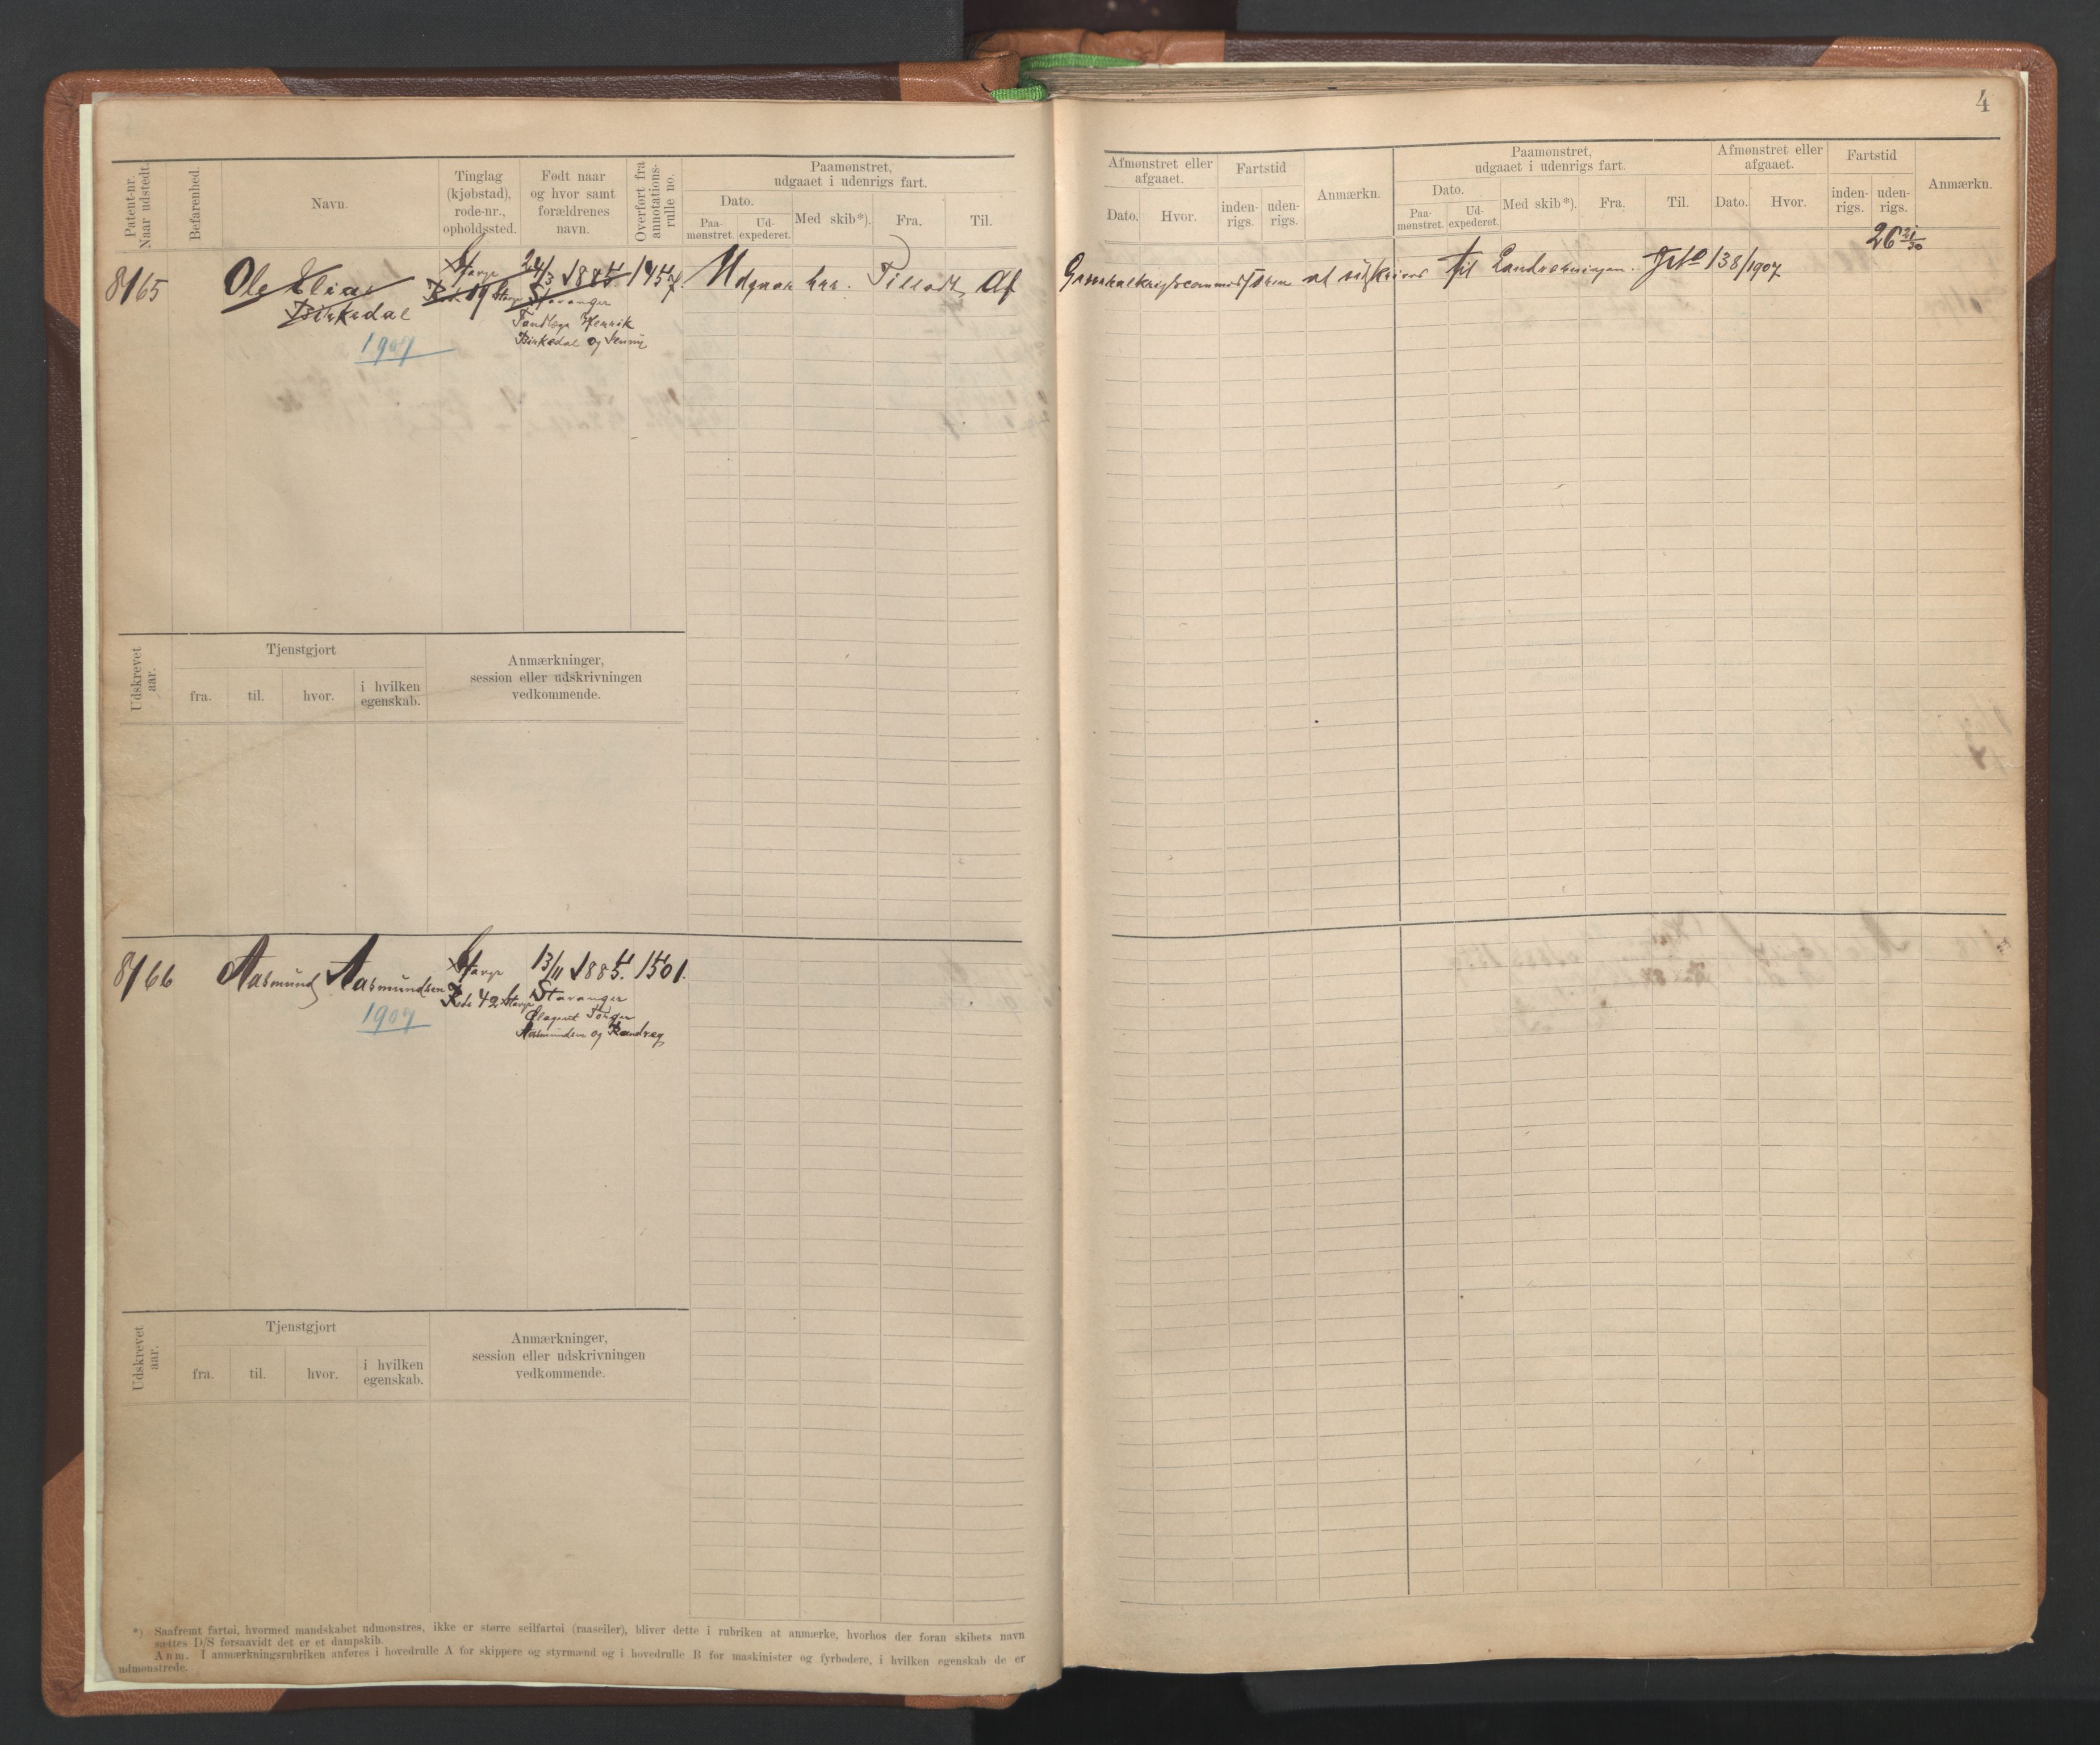 4
Patent-nr.
Naar udstedt.
Befarenhed.
Navn.
Tinglag
(kjøbstad),
rode-nr.,
opholdssted.
Født naar
og hvor samt
forældrenes
navn.
Overført fra
annotations-
rulle no.
Paamønstret,
udgaaet i udenrigs fart.
Dato.
Paa-
mønstret.
Ud-
expederet.
Med skib*).
Fra.
Til.
Afmønstret eller
afgaaet.
Dato.
Hvor.
Fartstid
inden-
rigs.
uden-
rigs.
Anmærkn.
Paamønstret,
udgaaet i udenrigs fart.
Dato.
Paa-
mønstret.
Ud-
expederet.
Med skib*).
Fra.
Til.
Afmønstret eller
afgaaet.
Dato.
Hvor.
Fartstid
inden-
rigs.
uden-
rigs.
Anmærkn.
8165
Ole Elias
Birkedal
1907
Stavgr
Rode 19 Stavgr
24/3 1885
Stavanger
Tandlæge Henrik
Birkedal og Jenny
Udgaar her. Tilladt af
til Landrulningen. 138/1907
26 21/30
Udskrevet
aar.
Tjenstgjort
fra.
til.
hvor.
i hvilken
egenskab.
Anmærkninger,
session eller udskrivningen
vedkommende.
8166
Aasmund Aasmundsen
1907
Stavgr
Rode 42 Stavgr
13/11 1885.
Stavanger
Torger
Aasmundsen og Randveg
1501.
Udskrevet
aar.
Tjenstgjort
fra.
til.
hvor.
i hvilken
egenskab.
Anmærkninger,
session eller udskrivningen
vedkommende.
*) Saafremt fartøi, hvormed mandskabet udmønstres, ikke er større seilfartøi (raaseiler), bliver dette i rubriken at anmærke, hvorhos der foran skibets navn
sættes D/S forsaavidt det er et dampskib.
Anm. I anmærkningsrubriken anføres i hovedrulle A for skippere og styrmænd og i hovedrulle B for maskinister og fyrbødere, i hvilken egenskab de er
udmønstrede.